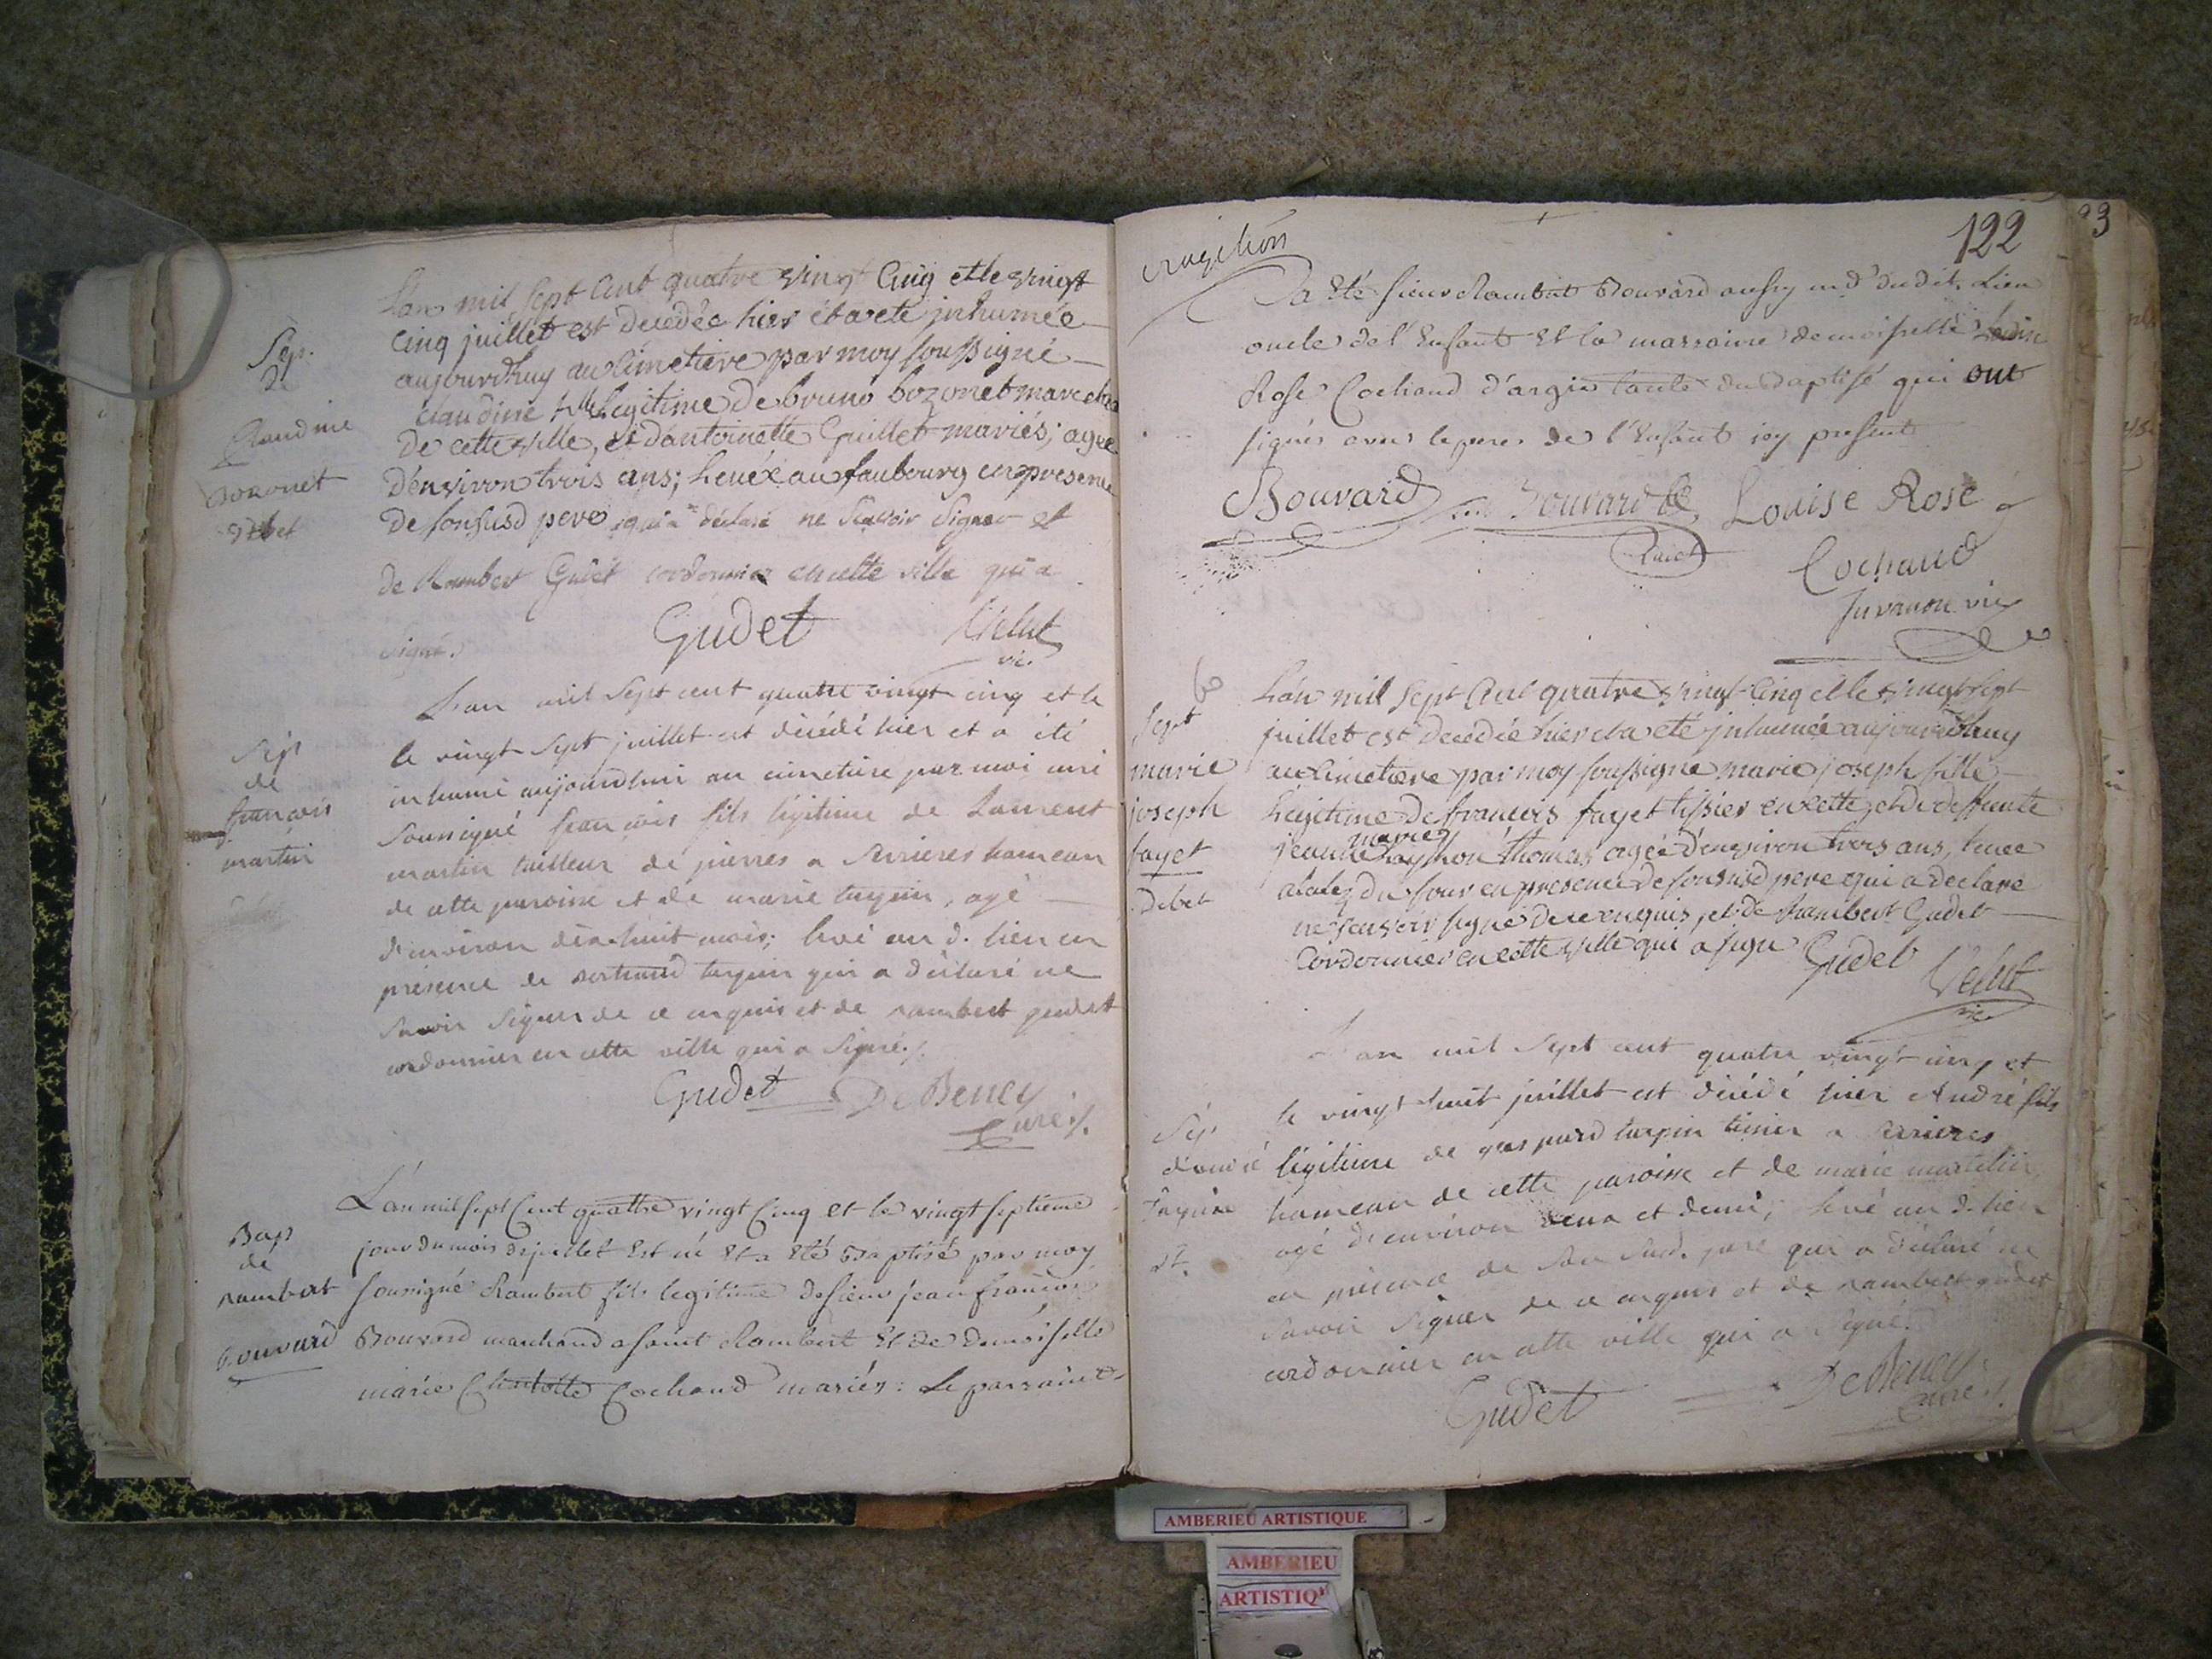 L'an mil sept cent quatre vingt cinq et le vingt
cinq juillet est decedée hier et a eté inhumée
aujourdhuy au cimetiere par moy soussigné
Sep.
de
Claudine
bozonet
debet
claudine fille legitime de bruno bozonet marchand
de cette ville, et d'antoinette Guillet mariés; agée
d'environ trois ans; levée au faubourg en presence
de son susd pere qui a déclaré ne sçavoir signer et
de Rambert Gudet cordonnier en cette ville qui a
signé.
Gudet
Velut
vic.
L'an mil sept cent quatre vingt cinq et le
le vingt sept juillet est décédé hier et a été
inhumé aujourdhui au cimetiere par moi curé
Sep
de
françois
martin
soussigné françois fils légitime de Laurent
martin tailleur de pierres a Serrieres hameau
de cette paroisse et de marie turpin, agé
d'environ dix-huit mois; levé au d. lieu en
présence de bertrand turpin qui a déclaré ne
savoir signer de ce enquis et de rambert gudet
cordonnier en cette ville qui a signé./.
Gudet
De Beney
Curé./.
Bap
de
rambert
bouvard
L'an mil sept Cent quatre vingt Cinq et le vingt septieme
jour du mois de juillet Est né Et a Eté Baptisé par moy
sousigné Rambert fils legitime de sieur jean françois
Bouvard marchand a saint Rambert Et de Demoiselle
marie Charlotte Cochaud mariés: Le parrain
122
93
a Eté sieur Rambert Bouvard aussy md dudit Lieu
oncle de l'Enfant Et la marraine demoiselle
Rose Cochaud d'argis tante du Baptisé qui ont
signés avec le pere de l'Enfant icy present
Bouvard
Bouvard
Louise Rose
Cochaud
Juvanon vic
Sept
marie
joseph
fayet
Debet
L'an mil sept Cent quatre vingt Cinq et le vingt sept
juillet est decedée hier et a eté inhumée aujourdhuy
au cimetiere par moy soussigné marie joseph fille
legitime de françois fayet tissier en cette, et de deffunte
mariés
jeanne thomas agée d'environ trois ans, levée
du four en presence de son susd pere qui a declaré
ne sçavoir signé de ce enquis, et de Rambert Gudet
Cordonnier en cette ville qui a signé
Gudet
Velut
vic.
L'an mil sept cent quatre vingt cinq et
le vingt huit juillet est décédé hier André fils
Sep.
d'andré
turpin
légitime de gaspard turpin a serrieres
hameau de cette paroisse et de marie martelin
agé d'environ deux et demi; levé au d. lieu
en présence de son susd. pere qui a déclaré ne
savoir signer de ce enquis et de rambert gudet
cordonnier en cette ville qui a signé.
Gudet
De Beney
Curé./.
AMBERIEU ARTISTIQUE
AMBERIEU
ARTISTIQ